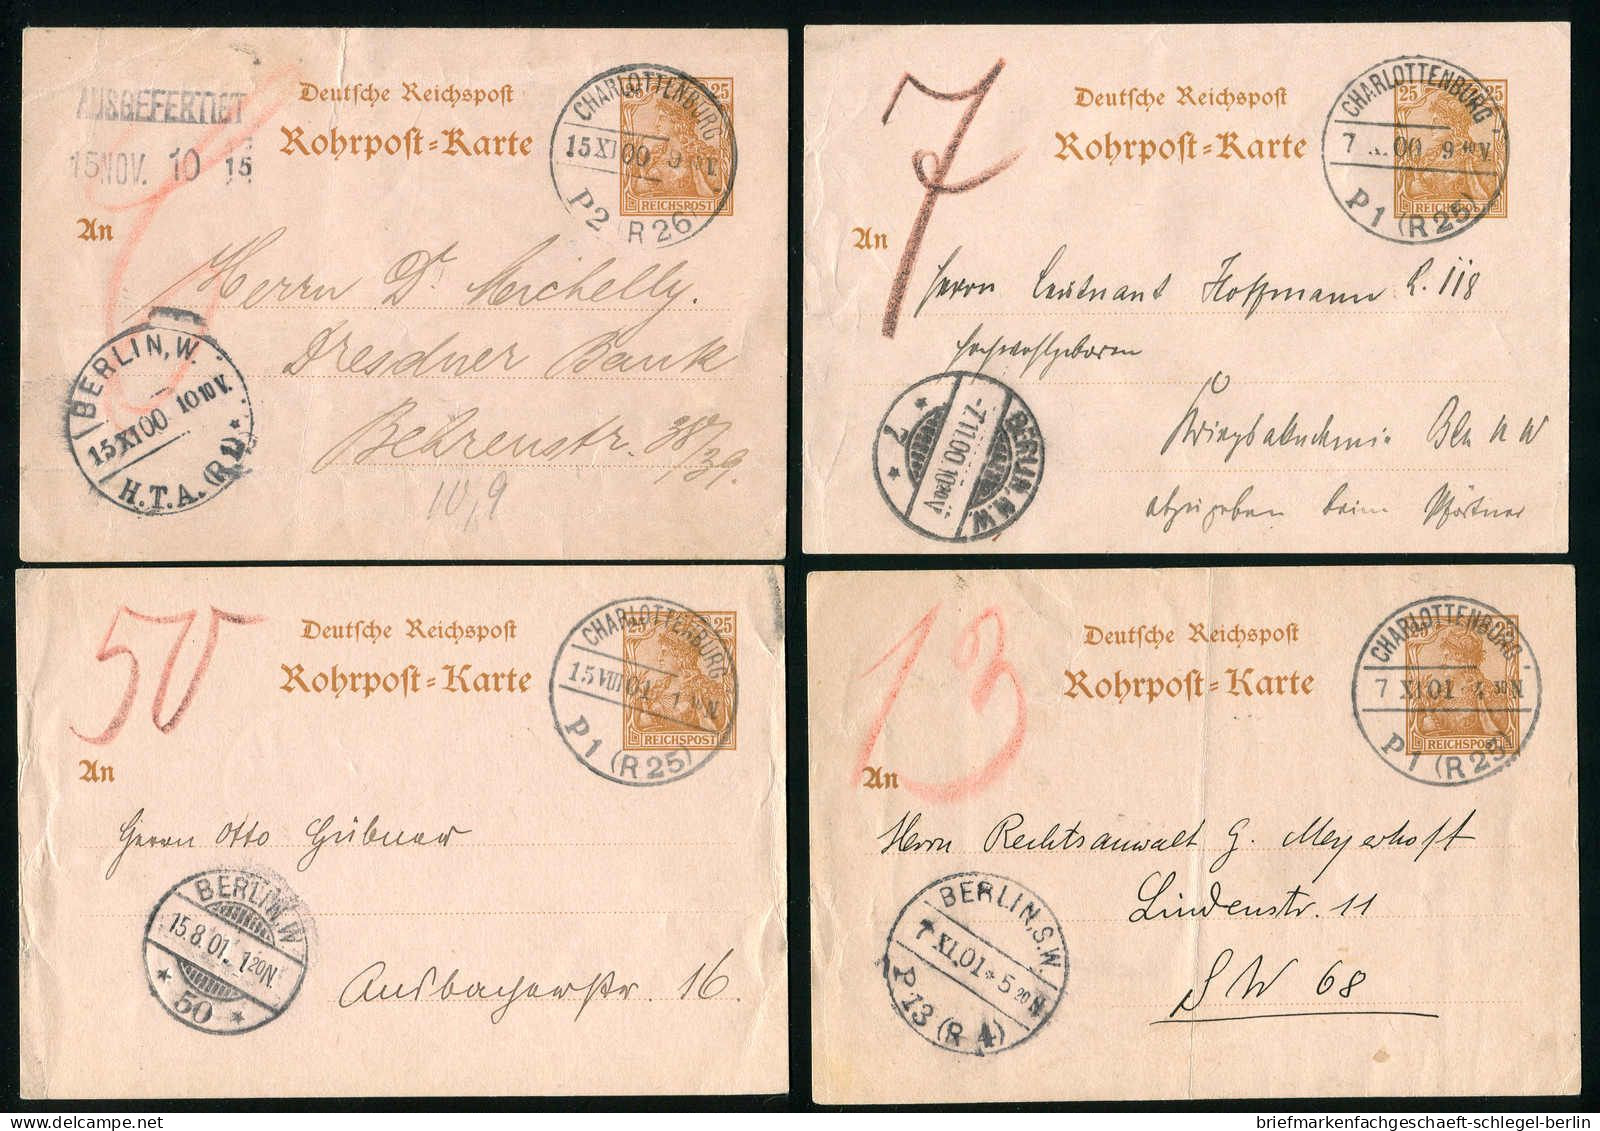 AUSGEFERTIGT
15 NOV. 10 15
Deutsche Reichspost
Rohrpost-Karte
25 25
REICHSPOST
CHARLOTTENBURG
15 XI 00
P2 (R 26)
An
Herrn Dr. Michelly.
Dresdner Bank
Behrenstr. 38/39.
10,9
BERLIN, W.
15 XI 00 10 10 V.
H.T.A. (R 1) *
7
Deutsche Reichspost
Rohrpost-Karte
25 25
REICHSPOST
CHARLOTTENBURG
7 X. 00 9 40 V.
P1 (R 25)
An
Herrn Leutnant Hoffmann R. 118
Hochwohlgeboren
Kriegsakademie Bln N W
abzugeben beim Pförtner
BERLIN, N.W.
-7.11.00. 10 20 V
* 7 *
50
Deutsche Reichspost
Rohrpost-Karte
25 25
REICHSPOST
CHARLOTTENBURG
15 VIII 01
P1 (R 25)
An
Herrn Otto Hübner
Ansbacherstr. 16.
BERLIN, W
15.8.01. 1 20 N.
* 50 *
13
Deutsche Reichspost
Rohrpost-Karte
25 25
REICHSPOST
CHARLOTTENBURG
7 XI 01 4 30 N
P1 (R 23)
An
Herrn Rechtsanwalt G. Meyerhoff
Lindenstr. 11
SW 68
BERLIN, S.W.
7 XI. 01 * 5 20 N
P 13 (R 4)
briefmarkenfachgeschaeft-schlegel-berlin